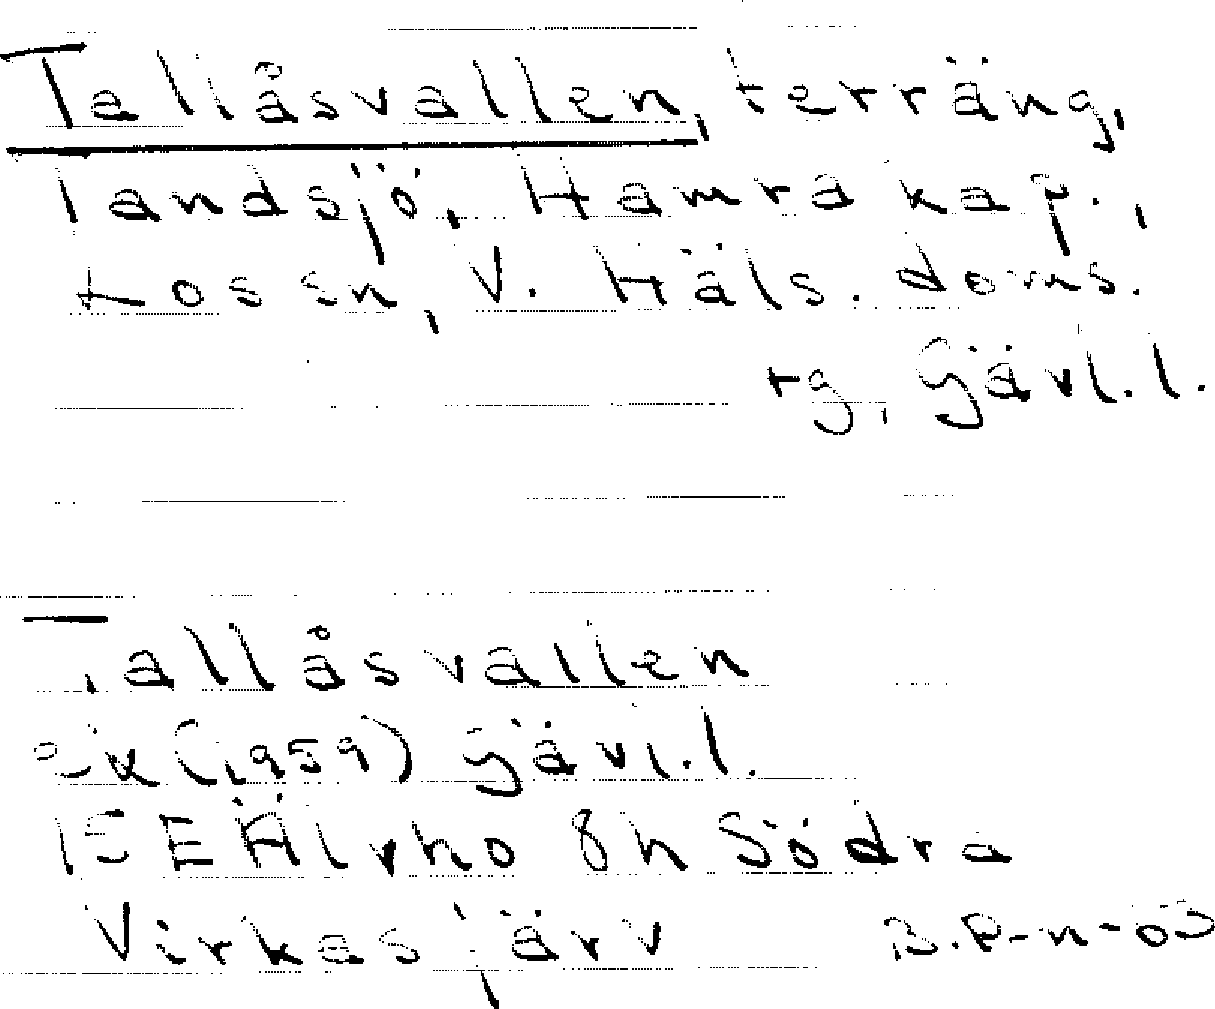 Tallåsvallen, terräng,
Tandsjö, Hamra kap.,
Los sn, V. Häls. doms.
rg, Gävl.l.
Tallåsvallen
Ek (1959) Gävl.l.
15E 8h Södra
Virkasjärv B.P-n-03